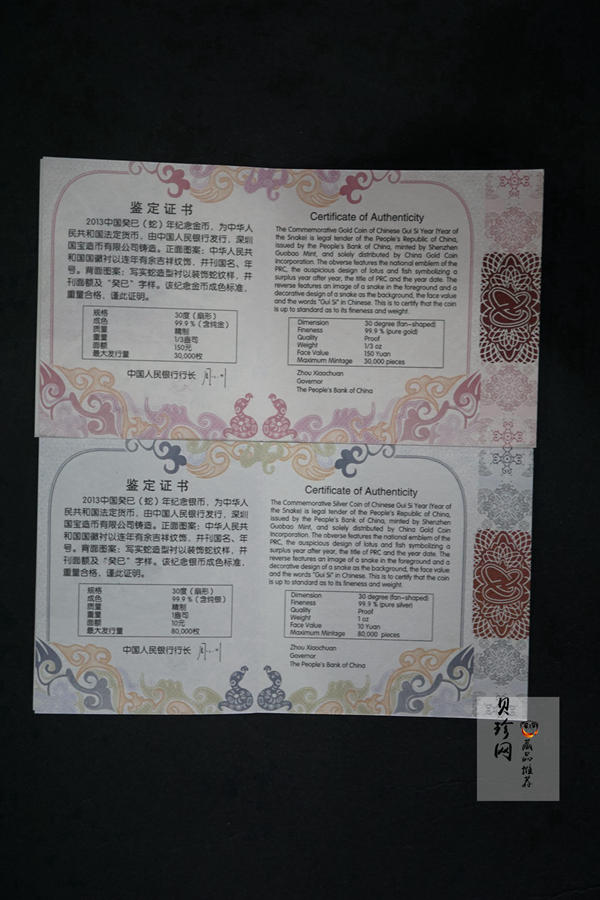 鉴定证书
2013中国癸巳（蛇）年纪念金币，为中华人
民共和国法定货币，由中国人民银行发行，深圳
国宝造币有限公司铸造。正面图案：中华人民共
和国国徽衬以连年有余吉祥纹饰，并刊国名、年
号。背面图案：写实蛇造型衬以装饰蛇纹样，并
刊面额及“癸巳”字样。该纪念金币成色标准，
重量合格，谨此证明。
规格 30度（扇形）
成色 99.9％（含纯金）
质量 精制
重量 1/3盎司
面额 150元
最大发行量 30,000枚
中国人民银行行长
Certificate of Authenticity
The Commemorative Gold Coin of Chinese Gui Si Year (Year of
the Snake) is legal tender of the People's Republic of China,
issued by the People's Bank of China, minted by Shenzhen
Guobao Mint, and solely distributed by China Gold Coin
Incorporation. The obverse features the national emblem of the
PRC, the auspicious design of lotus and fish symbolizing a
surplus year after year, the title of PRC and the year date. The
reverse features an image of a snake in the foreground and a
decorative design of a snake as the background, the face value
and the words "Gui Si" in Chinese. This is to certify that the coin
is up to standard as to its fineness and weight.
Dimension 30 degree (fan-shaped)
Fineness 99.9 % (pure gold)
Quality Proof
Weight 1/3 oz
Face Value 150 Yuan
Maximum Mintage 30,000 pieces
Zhou Xiaochuan
Governor
The People's Bank of China
鉴定证书
2013中国癸巳（蛇）年纪念银币，为中华人
民共和国法定货币，由中国人民银行发行，深圳
国宝造币有限公司铸造。正面图案：中华人民共
和国国徽衬以连年有余吉祥纹饰，并刊国名、年
号。背面图案：写实蛇造型衬以装饰蛇纹样，并
刊面额及“癸巳”字样。该纪念银币成色标准，
重量合格，谨此证明。
规格 30度（扇形）
成色 99.9％（含纯银）
质量 精制
重量 1盎司
面额 10元
最大发行量 80,000枚
中国人民银行行长
Certificate of Authenticity
The Commemorative Silver Coin of Chinese Gui Si Year (Year of
the Snake) is legal tender of the People's Republic of China,
issued by the People's Bank of China, minted by Shenzhen
Guobao Mint, and solely distributed by China Gold Coin
Incorporation. The obverse features the national emblem of the
PRC, the auspicious design of lotus and fish symbolizing a
surplus year after year, the title of PRC and the year date. The
reverse features an image of a snake in the foreground and a
decorative design of a snake as the background, the face value
and the words "Gui Si" in Chinese. This is to certify that the coin
is up to standard as to its fineness and weight.
Dimension 30 degree (fan-shaped)
Fineness 99.9 % (pure silver)
Quality Proof
Weight 1 oz
Face Value 10 Yuan
Maximum Mintage 80,000 pieces
Zhou Xiaochuan
Governor
The People's Bank of China
贝珍网
藏品推荐